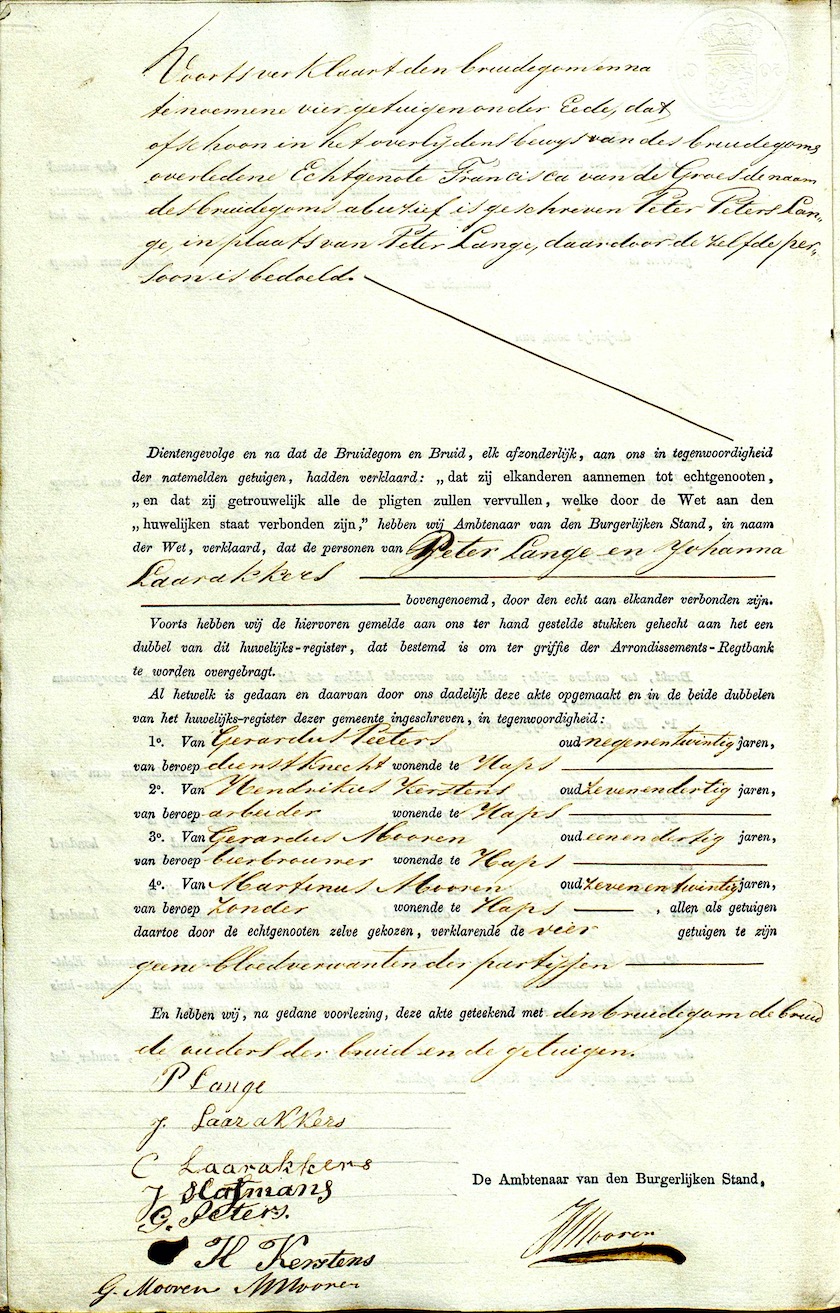 Voorts verklaart den bruidegom en na
te noemene vier getuigen onder Eede, dat
ofschoon in het overlijdensbewys van des bruidegoms
overledene Echtgenote Francisca van de Groes de naam
des bruidegoms abuzief is geschreven Peter Peters Lan„
ge, in plaats van Peter Lange, daardoor de zelfde per„
soon is bedoeld.
Dientengevolge en na dat de Bruidegom en Bruid, elk afzonderlijk, aan ons in tegenwoordigheid
der natemelden getuigen, hadden verklaard: „dat zij elkanderen aannemen tot echtgenooten,
„en dat zij getrouwelijk alle de pligten zullen vervullen, welke door de Wet aan den
„huwelijken staat verbonden zijn,” hebben wij Ambtenaar van den Burgerlijken Stand, in naam
der Wet, verklaard, dat de personen van Peter Lange en Johanna
Laarakkers
bovengenoemd, door den echt aan elkander verbonden zijn.
Voorts hebben wij de hiervoren gemelde aan ons ter hand gestelde stukken gehecht aan het een
dubbel van dit huwelijks-register, dat bestemd is om ter griffie der Arrondissements-Regtbank
te worden overgebragt.
Al hetwelk is gedaan en daarvan door ons dadelijk deze akte opgemaakt en in de beide dubbelen
van het huwelijks-register dezer gemeente ingeschreven, in tegenwoordigheid:
1o. Van Gerardus Peeters oud negenentwintig jaren,
van beroep dienstknecht wonende te Haps
2o. Van Hendrikus Kerstens oud zevenendertig jaren,
van beroep arbeider wonende te Haps
3o. Van Gerardus Mooren oud eenendertig jaren,
van beroep bierbrouwer wonende te Haps
4o. Van Martinus Mooren oud zevenentwintig jaren,
van beroep zonder wonende te Haps , allen als getuigen
daartoe door de echtgenooten zelve gekozen, verklarende de vier getuigen te zijn
geene bloedverwanten der partijen
En hebben wij, na gedane voorlezing, deze akte geteekend met den bruidegom de bruid
de ouders der bruid en de getuigen.
P Lange
J. Laarakkers
C Laarakkers
J Hofmans
G. Peters.
De Ambtenaar van den Burgerlijken Stand,
H Kerstens
G. Mooren M Mooren
Mooren